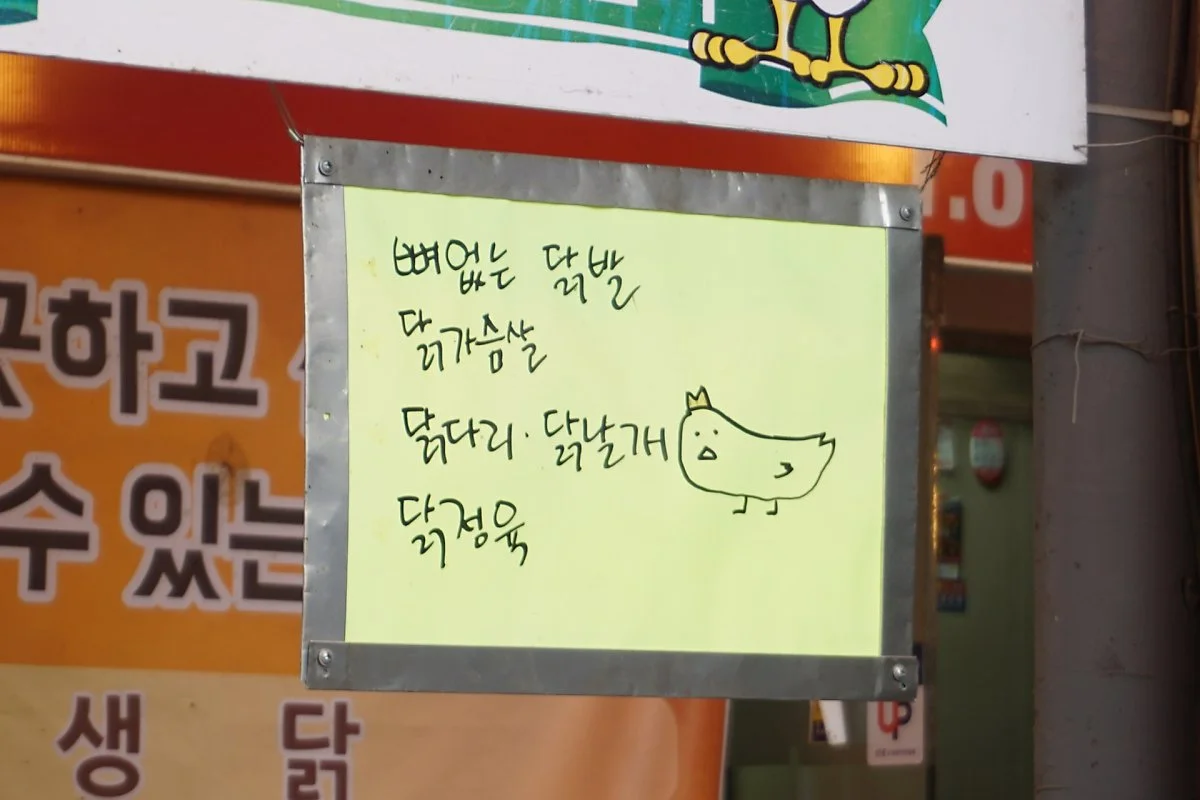 뼈없는 닭발
닭가슴살
닭다리·닭날개
닭정육
하고
수 있는
생 닭
.0
UP